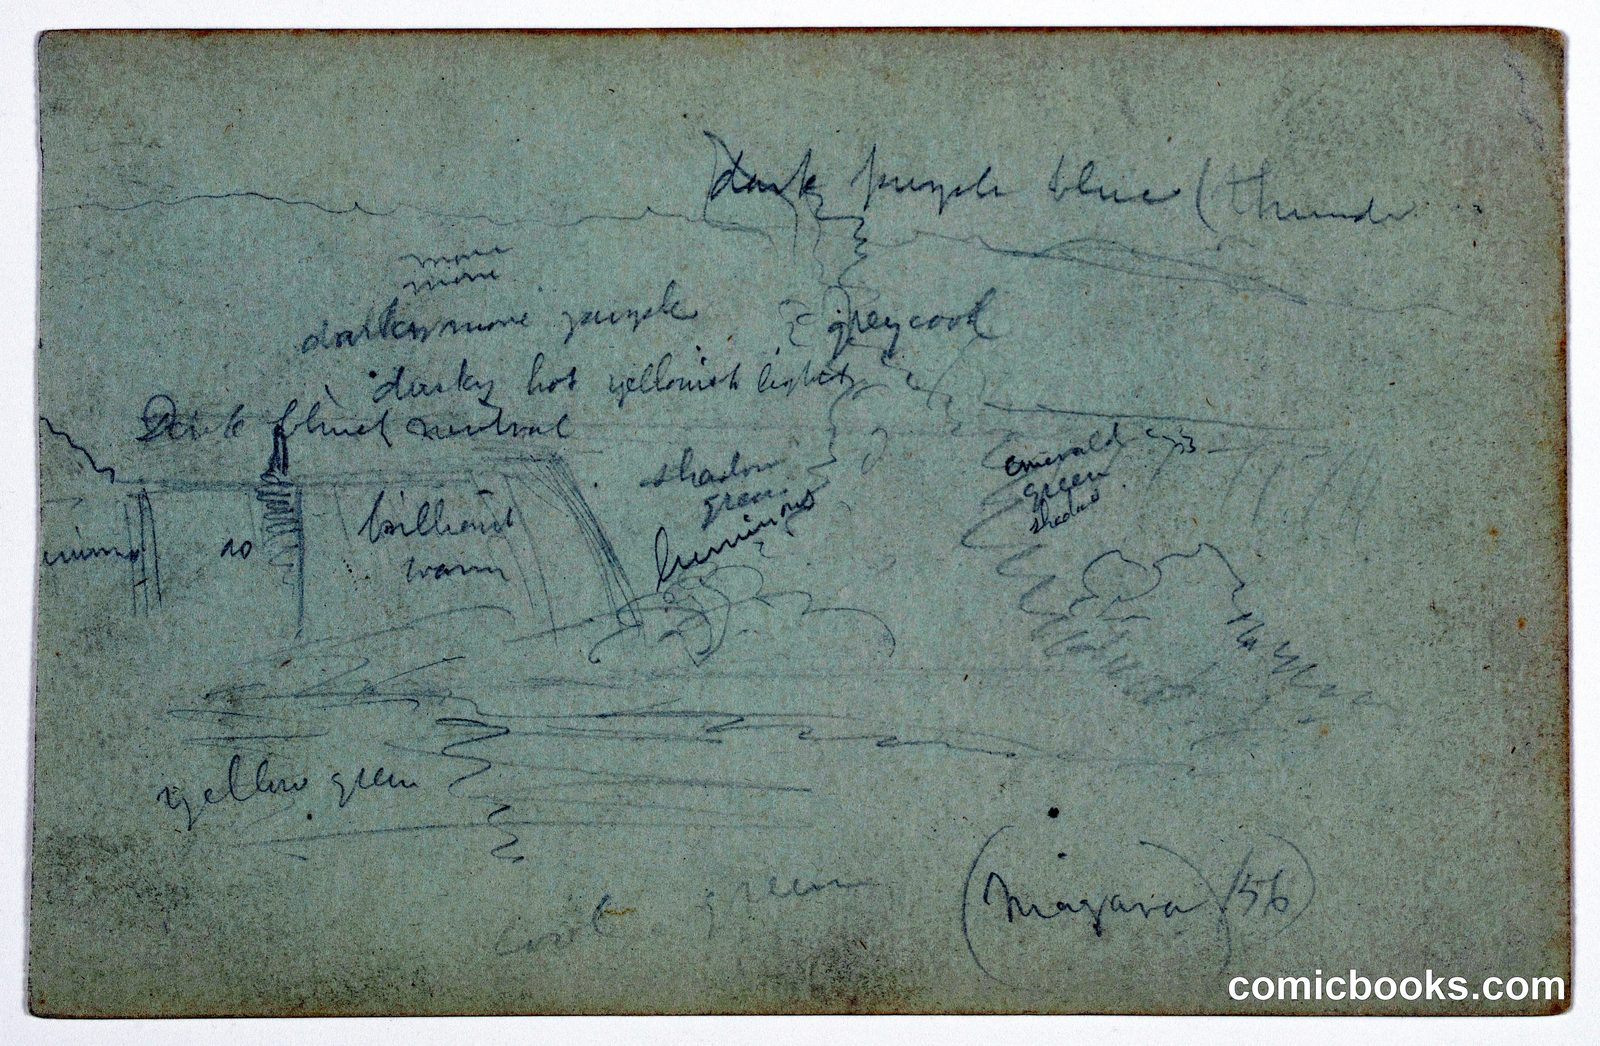 dark purple blue (thunder
more
more
darker more purple
grey cool
dusky hot yellowish light
Dark neutral
shadow
green
luminous
emerald
green
shadow
brilliant
warm
yellow green
cool green
(Niagara) /56)
comicbooks.com